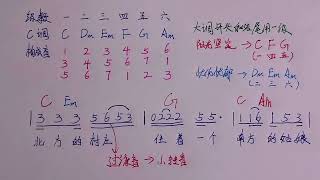 级数 一 二 三 四 五 六
C调 C Dm Em F G Am
1 2 3 4 5 6
3 4 5 6 7 1
5 6 7 1 2 3
大调开头和结尾用一级
→ C F G
(一 四 五)
→ Dm Em Am
(二 三 六)
C Em G C Am
| 3 3 3 5 6 5 3 | 0 2 2 2 5 5 | 1 1 6 1 5 3 |
北方的村庄 住着一个 南方的姑娘
过渡音 →